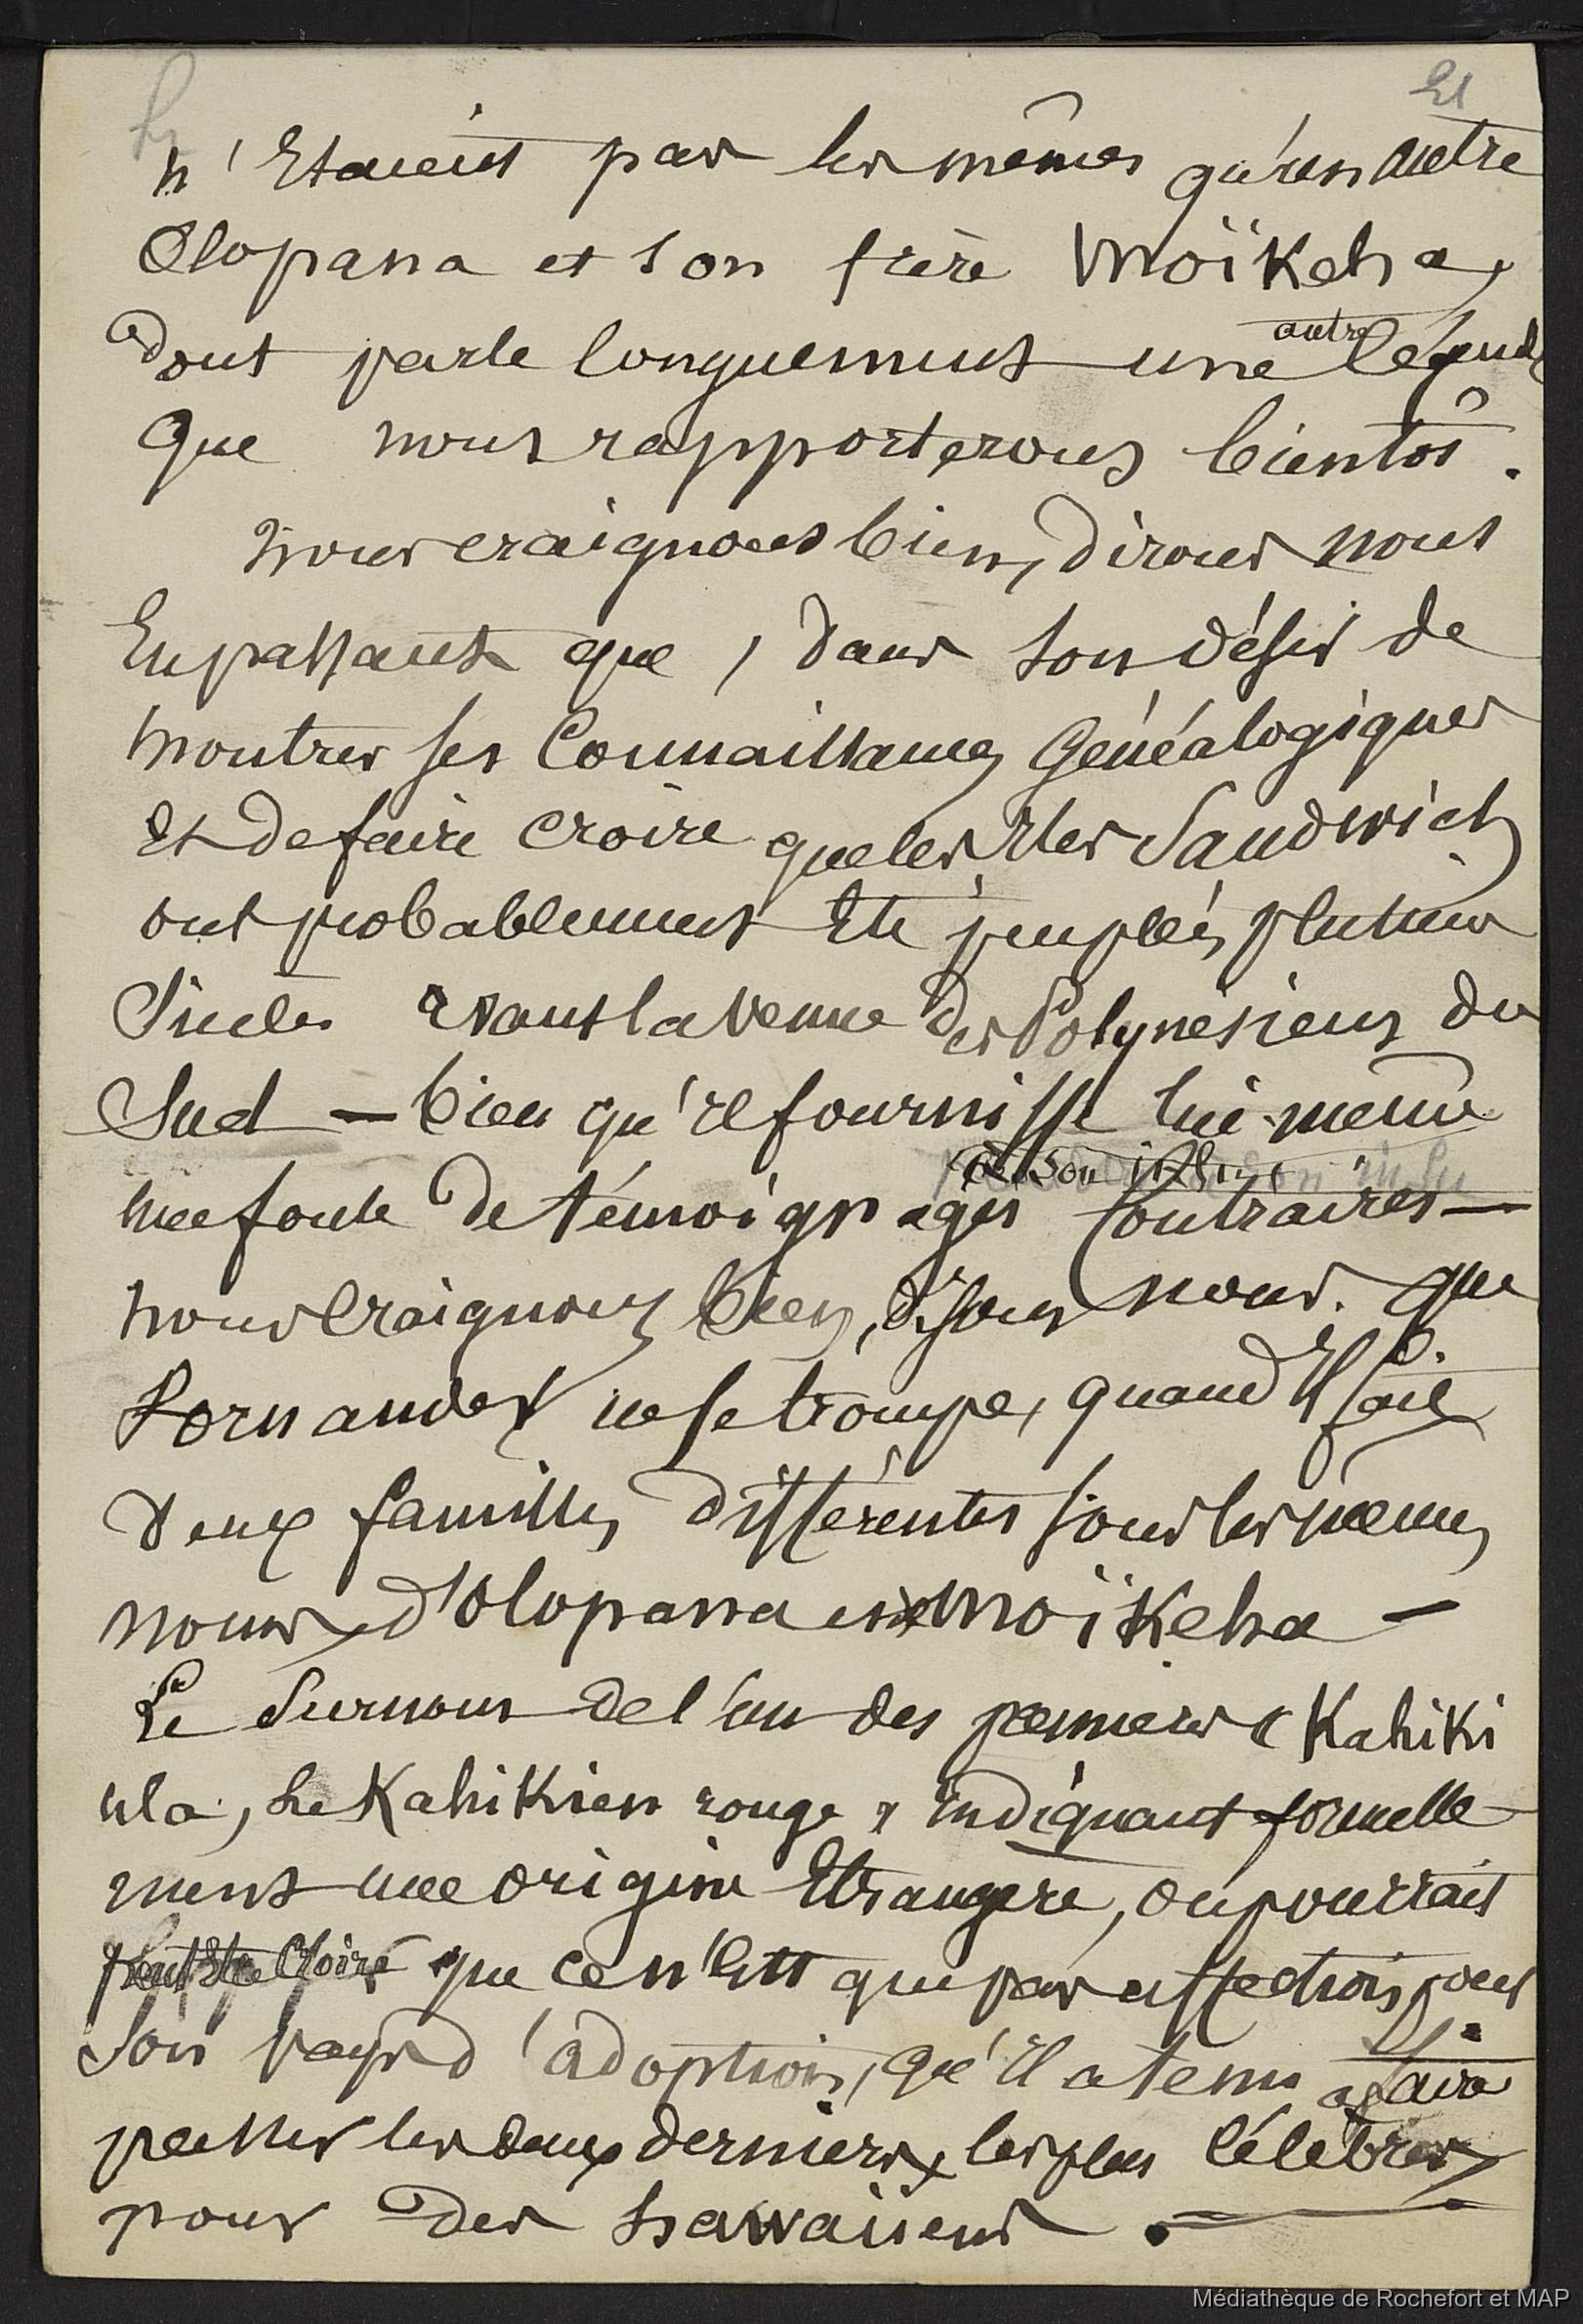 21
n'Etaient pas les mêmes qu'un autre
Olopana et son frère Moïkeha,
dont parle longuement une autre légende
que nous rapporterons bientôt.
Nous craignons bien, dirons nous
En passant que, dans son désir de
montrer ses Connaissances Généalogiques
Et de faire croire que les Iles Sandwich
ont probablement Eté peuplées plusieurs
Siècles avant la venue des Polynésiens du
Sud — bien qu'il fournisse lui-même
à son insu
une foule de témoignages Contraires —
nous Craignons bien, disons nous. que
Fornander ne se trompe, quand Il fait
deux familles différentes sous les mêmes
noms d'Olopana et Moïkeha —
Le Surnom de l'un des premiers « Kahiki
ula, Le Kahikien rouge » indiquant formelle
ment une origine Etrangère, on pourrait
peut-être Croire que ce n'Est que par affection pour
Son pays d'adoption, qu'Il a tenu à faire
passer les deux derniers, les plus Célèbres,
pour des hawaiiens.
Médiathèque de Rochefort et MAP